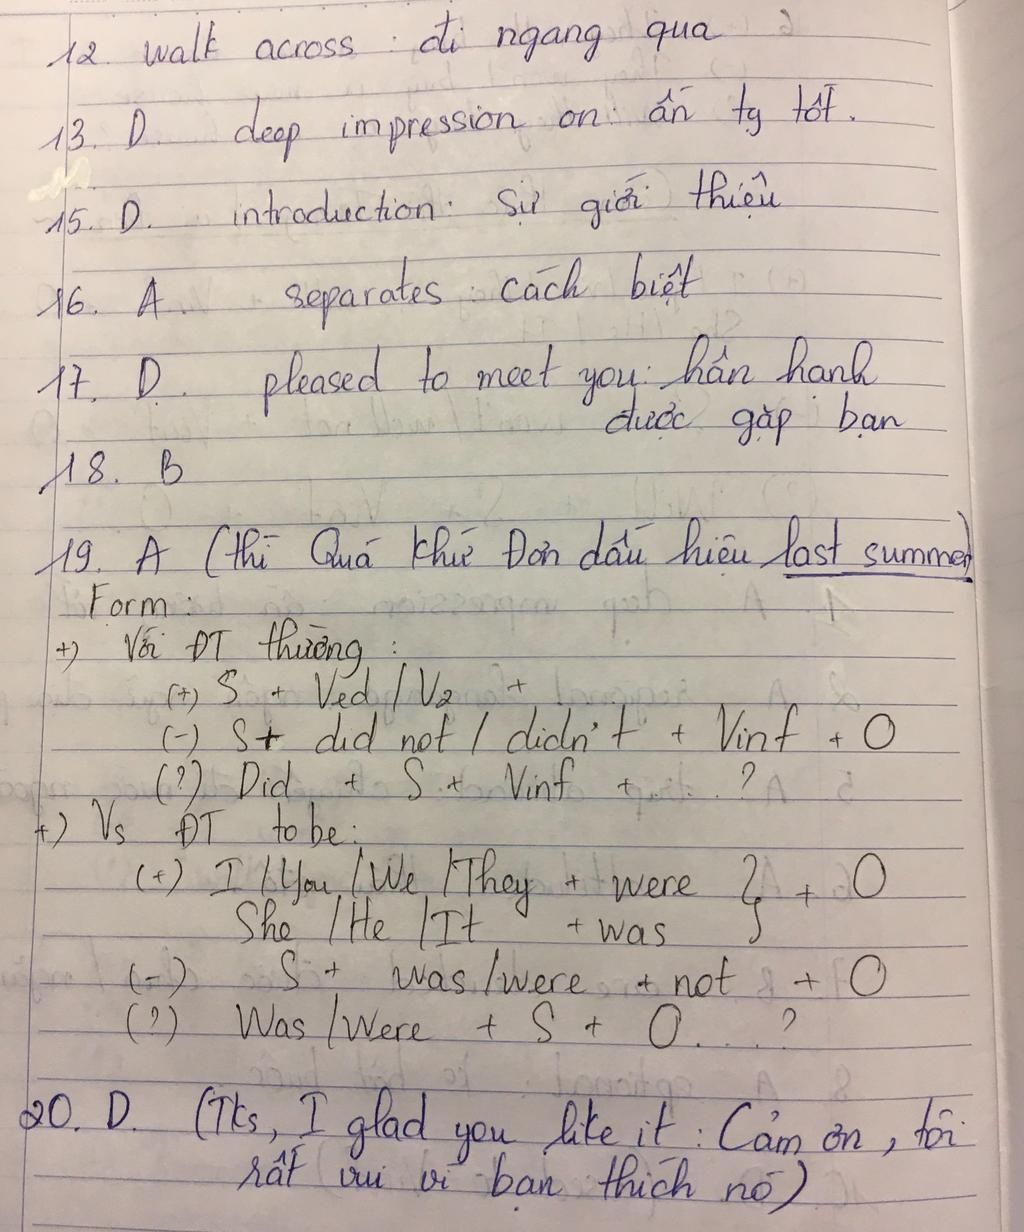 12. walk across : đi ngang qua
13. D. deep impression on : ấn tg tốt.
15. D. introduction : sự giới thiệu
16. A separates : cách biệt
17. D. pleased to meet you : hân hanh
được gặp bạn
18. B
19. A (thì Quá khứ Đơn dấu hiệu last summer)
Form :
+) Với ĐT thường :
(+) S + Ved / V2 +
(-) S + did not / didn't + Vinf + O
(?) Did + S + Vinf + ...?
+) Vs ĐT to be :
(+) I / You / We / They + were } + O
She / He / It + was
(-) S + was / were + not + O
(?) Was / Were + S + O....?
20. D. (Tks, I glad you like it : Cảm ơn, tôi
rất vui vì bạn thích nó)